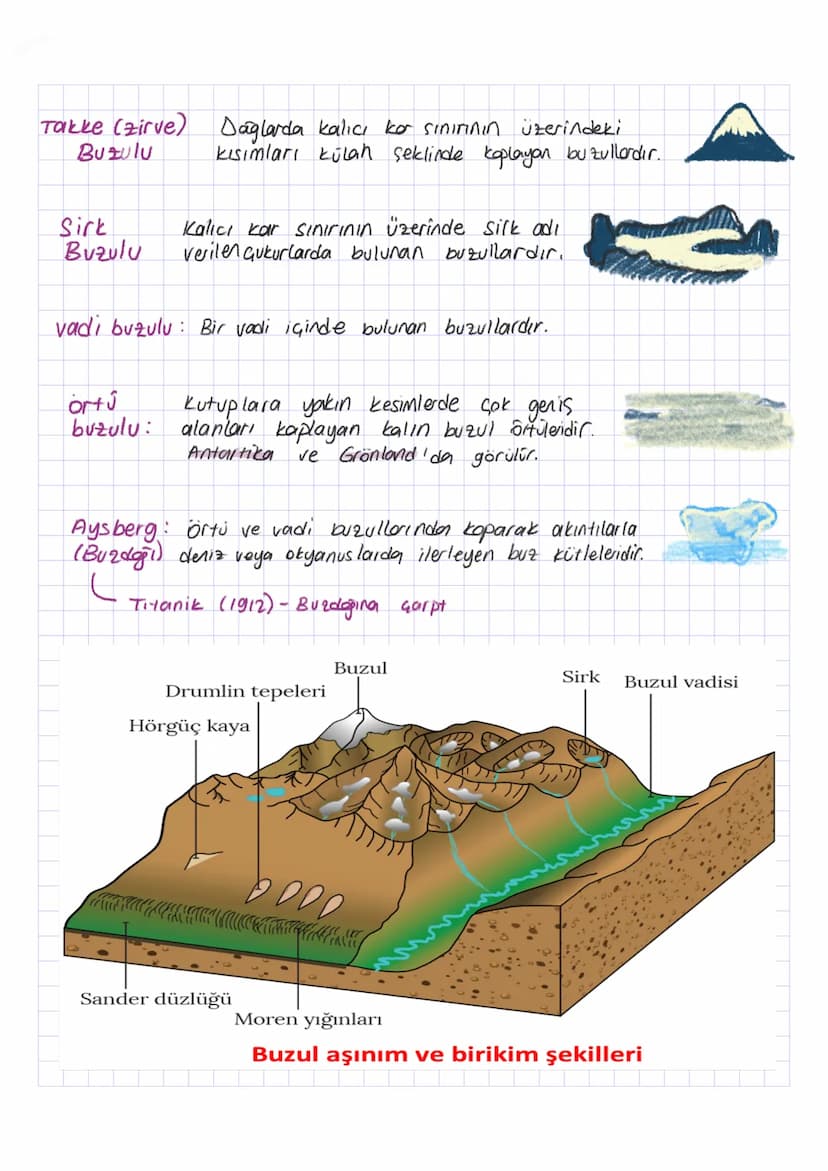 Takke (zirve) Dağlarda kalıcı kar sınırının üzerindeki
Buzulu kısımları külah şeklinde kaplayan buzullardır.
Sirk Kalıcı kar sınırının üzerinde sirk adı
Buzulu verilen çukurlarda bulunan buzullardır.
vadi buzulu: Bir vadi içinde bulunan buzullardır.
örtü Kutuplara yakın kesimlerde çok geniş
buzulu: alanları kaplayan kalın buzul örtüleridir.
Antartika ve Grönland'da görülür.
Aysberg: örtü ve vadi buzullarından koparak akıntılarla
(Buzdağı) deniz veya okyanuslarda ilerleyen buz kütleleridir.
Titanik (1912) - Buzdağına çarptı
Buzul
Sirk
Buzul vadisi
Drumlin tepeleri
Hörgüç kaya
Sander düzlüğü
Moren yığınları
Buzul aşınım ve birikim şekilleri